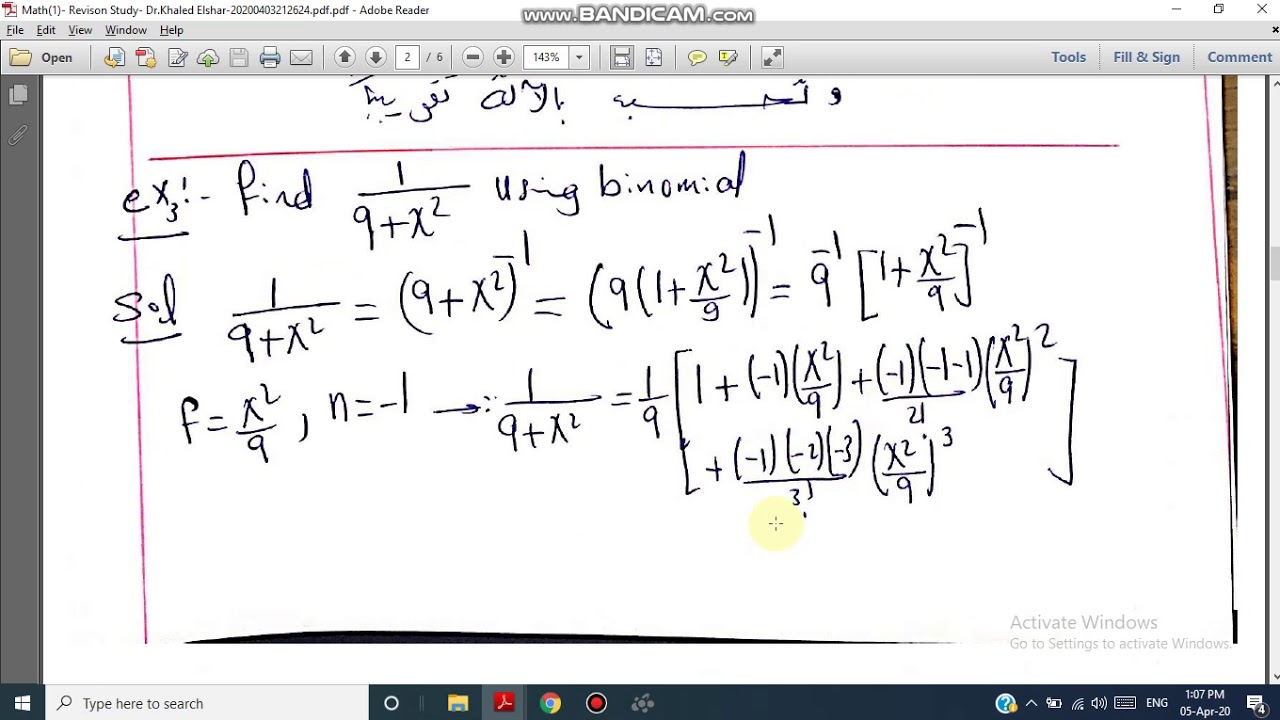 Math(1)- Revison Study- Dr.Khaled Elshar-20200403212624.pdf.pdf - Adobe Reader
www.BANDICAM.com
File Edit View Window Help
Open 2 / 6 143% Tools Fill & Sign Comment
ex3:- find 1/(9+x²) using binomial
Sol 1/(9+x²) = (9+x²)⁻¹ = (9(1+x²/9))⁻¹ = 9⁻¹ [1+x²/9]⁻¹
f = x²/9 , n = -1 → ∴ 1/(9+x²) = 1/9 [1 + (-1)(x²/9) + (-1)(-1-1)/2! (x²/9)²
+ (-1)(-2)(-3)/3! (x²/9)³]
Activate Windows
Go to Settings to activate Windows.
Type here to search
ENG
1:07 PM
05-Apr-20
4